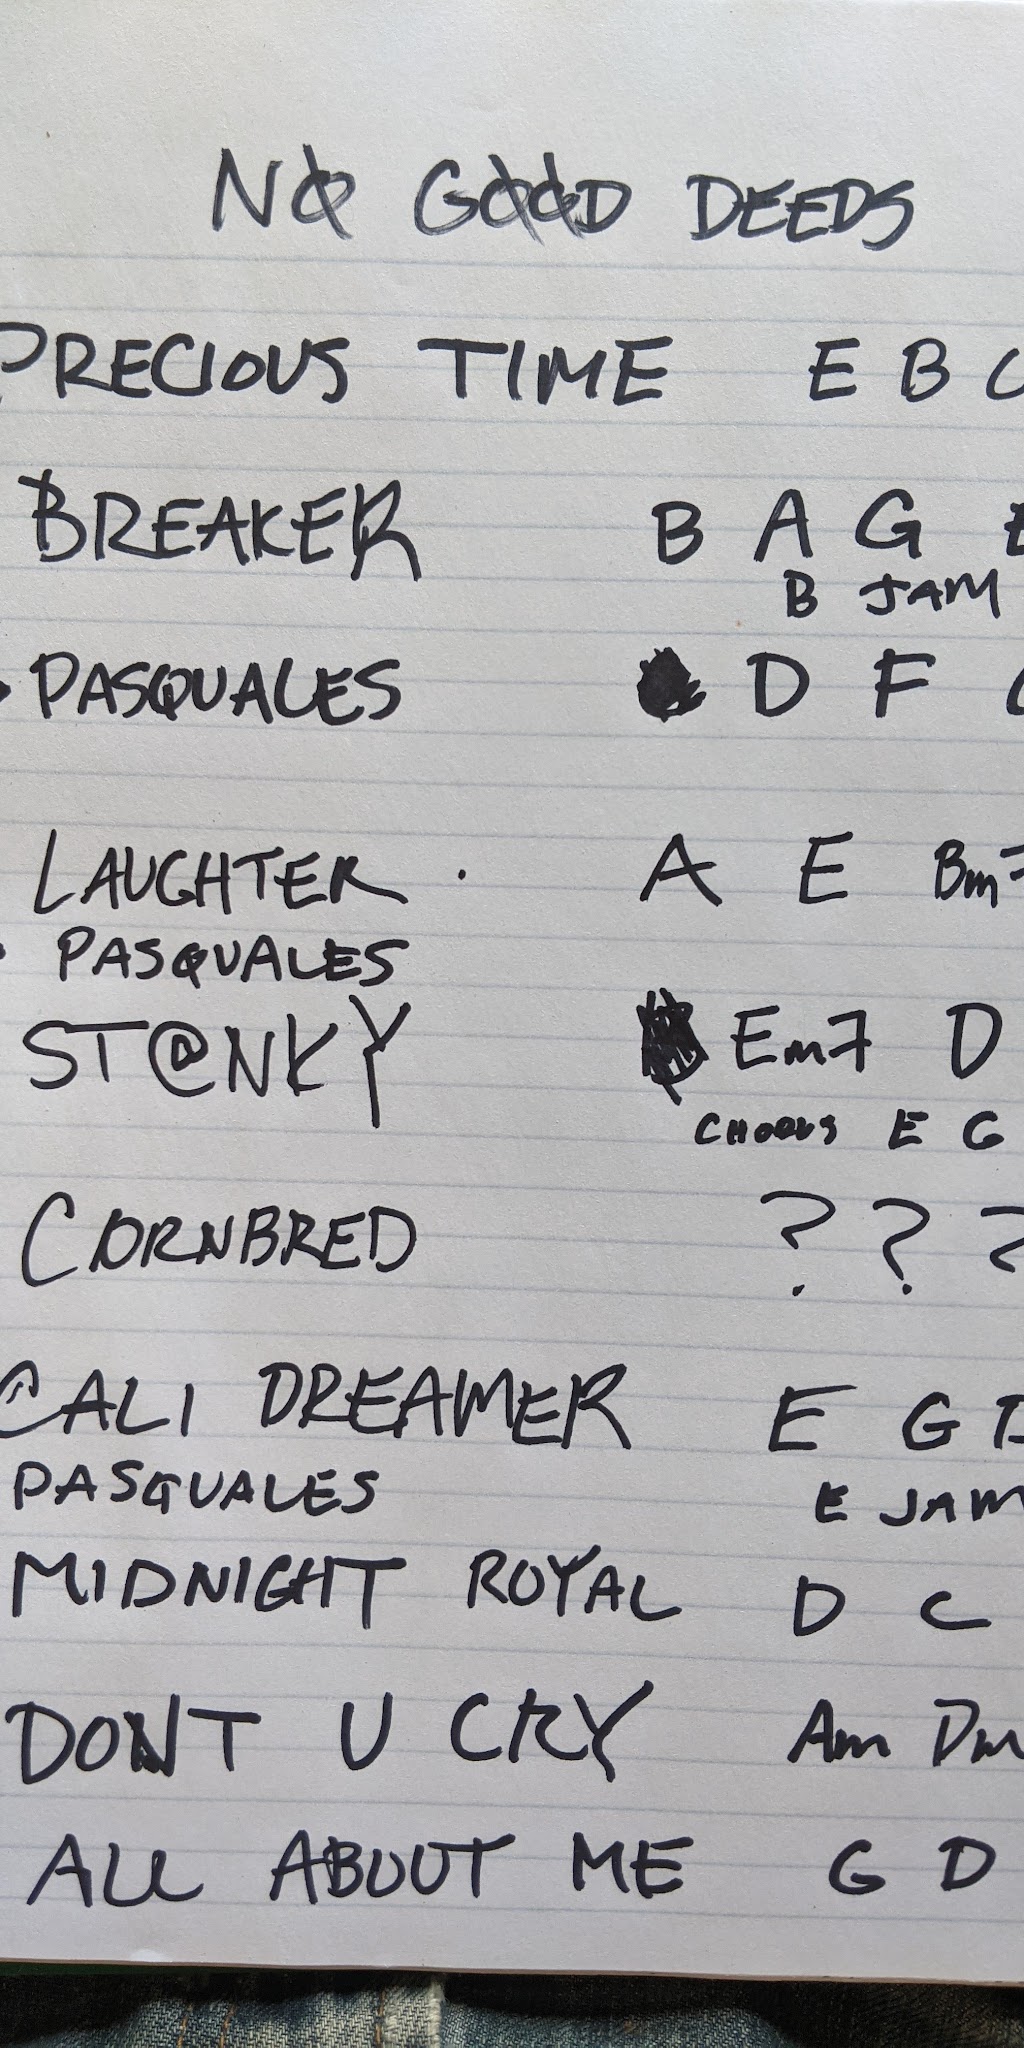 NØ GØØD DEEDS
PRECIOUS TIME E B C
BREAKER B A G E
B JAM
PASQUALES D F
LAUGHTER . A E Bm7
PASQUALES
ST@NKY Em7 D
CHORUS E G
CORNBRED ? ? ?
CALI DREAMER E G D
PASQUALES E JAM
MIDNIGHT ROYAL D C
DONT U CRY Am Dm
ALL ABOUT ME G D